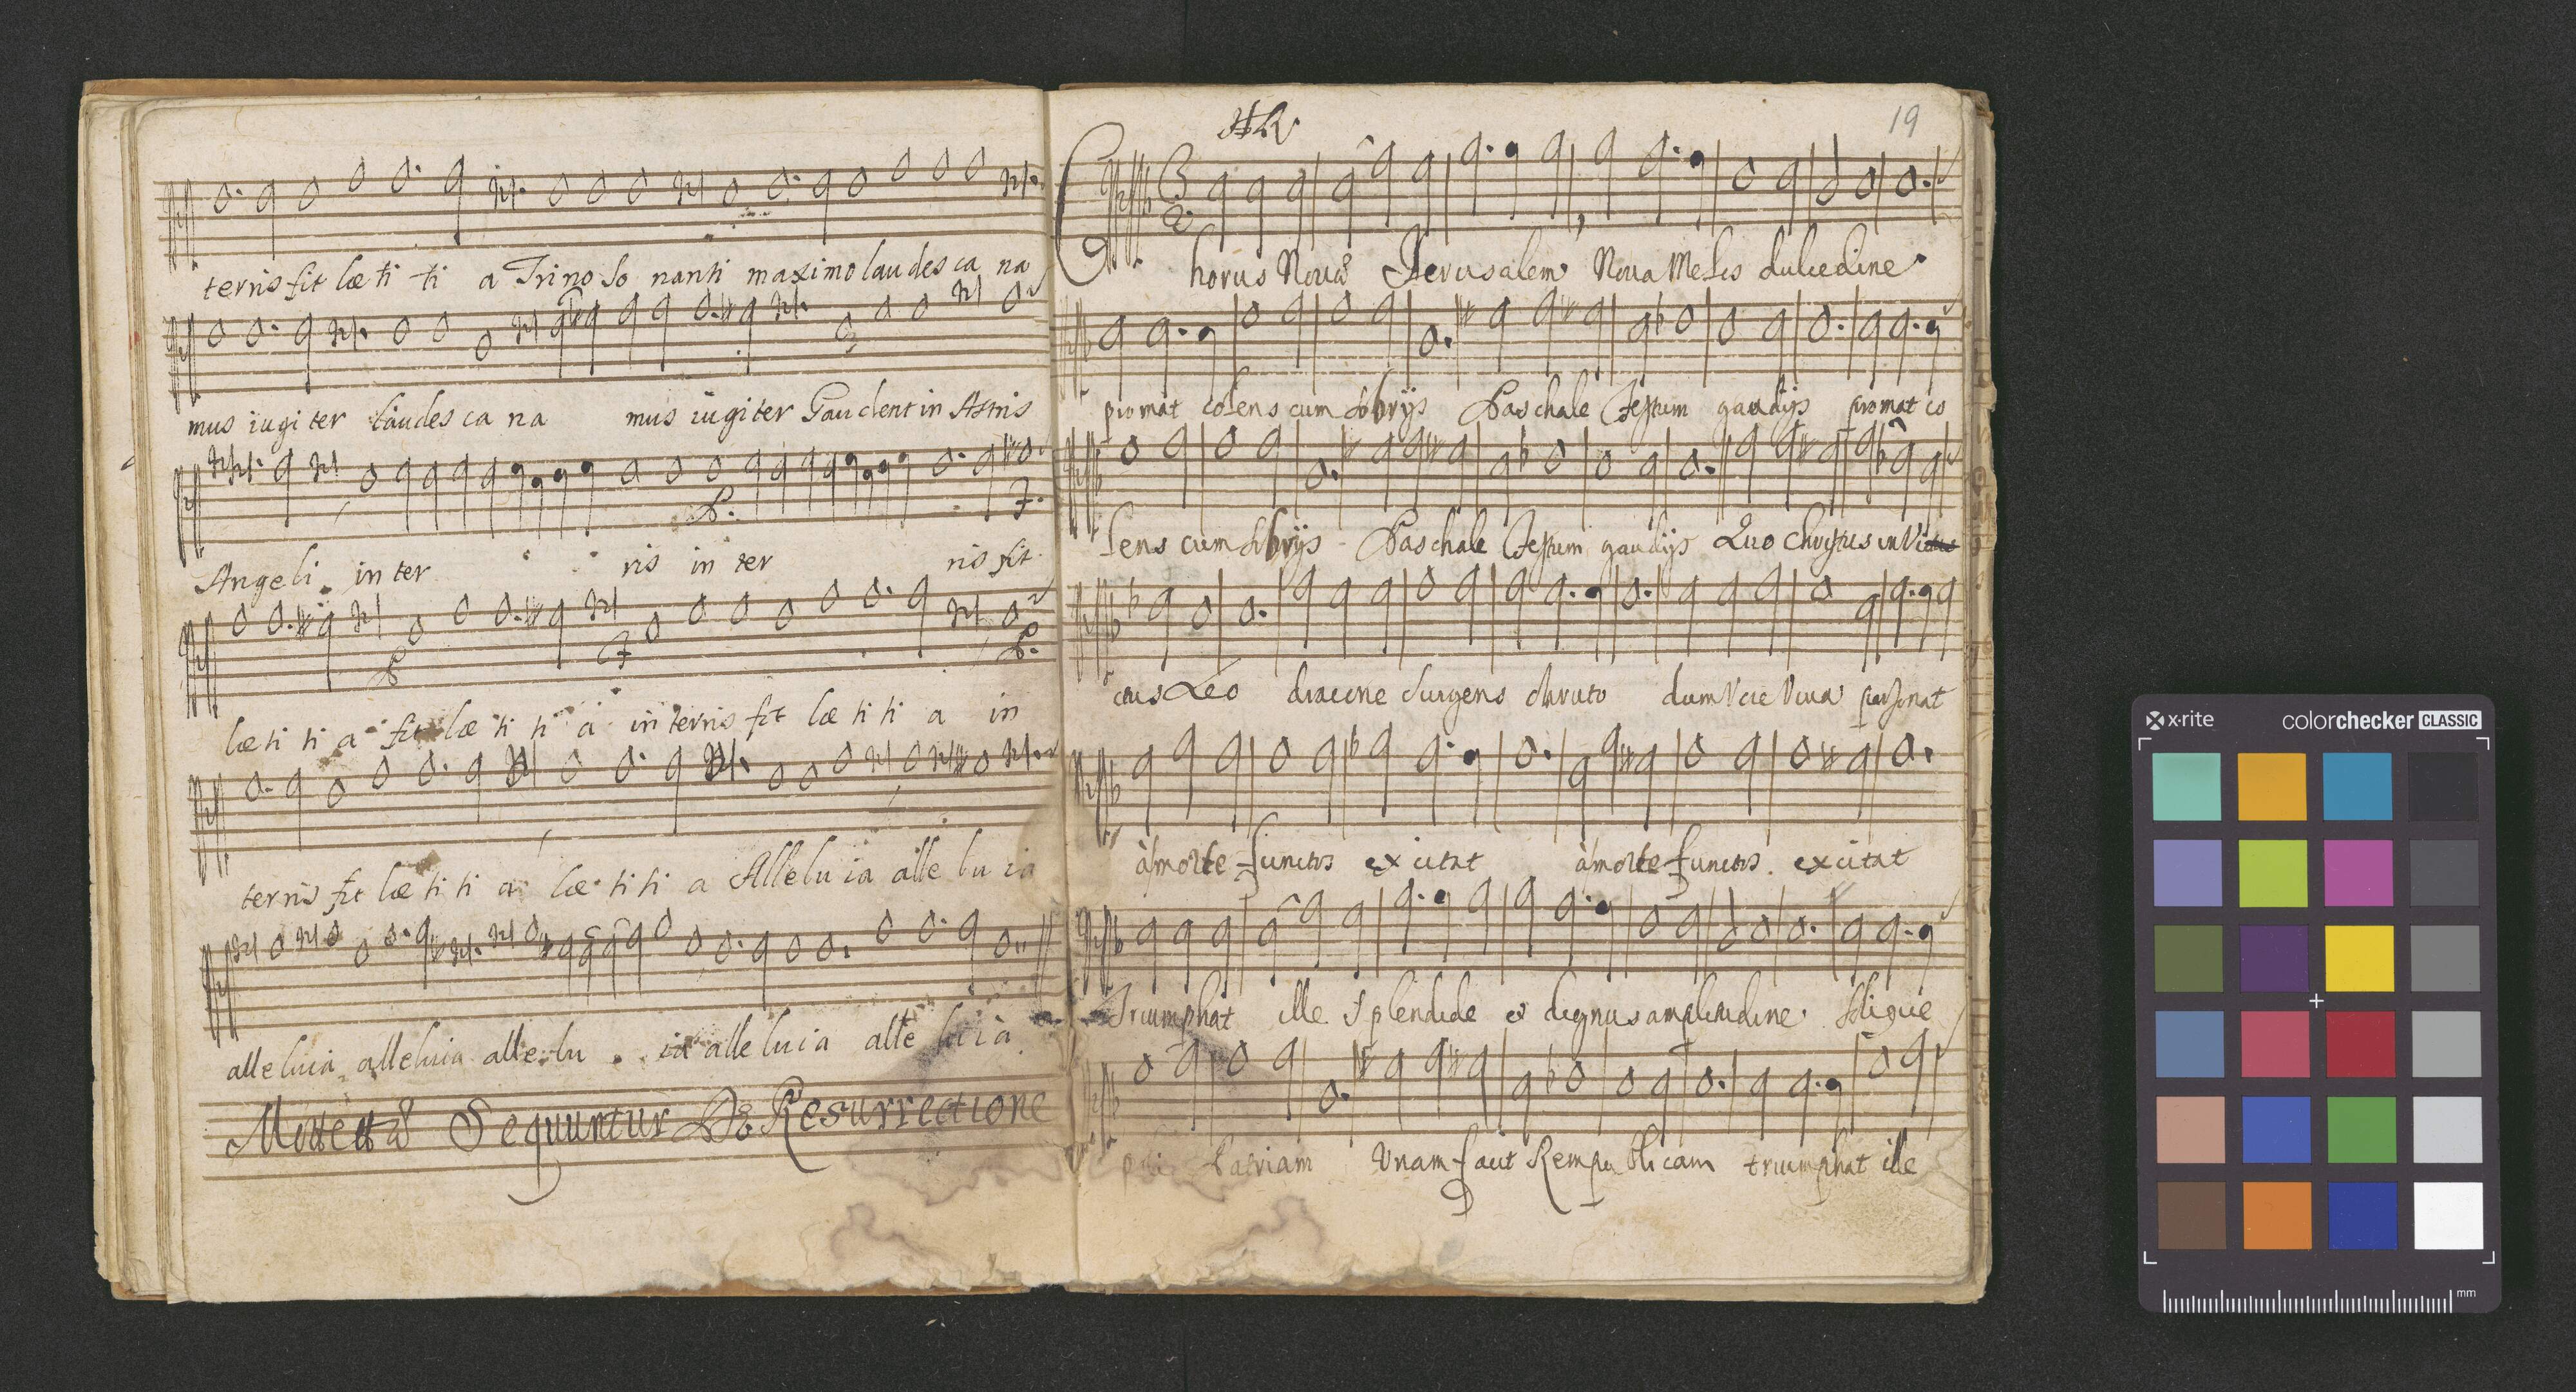 ternis fit læ ti ti a Trino so nanti maximo laudes ca na
mus iugi ter laudes ca na mus iugiter Gaudent in Astris
Angeli in ter ris in ter ris fit
læ ti ti a fit læ ti ti a in terris fit læ ti ti a in
terris fit læ ti ti a læ ti ti a Alleluia alle lu ia
alleluia alleluia alle lu ia alleluia alle luia
Motettæ Sequuntur De Resurrectione
19
Chorus Novæ Jerusalem Nova Melis dulcedine
promat colens cum sobrijs Paschale Festum gaudijs promat co
lens cum sobrijs Paschale Festum gaudijs Quo Christus invi
ctus Leo dracone surgens obruto dum voce viva personat
à morte functos excitat à morte functos excitat
Triumphat ille splendide et dignus amplitudine solique
poli patriam Unam facit Rempublicam triumphat ille
x-rite
colorchecker CLASSIC
mm